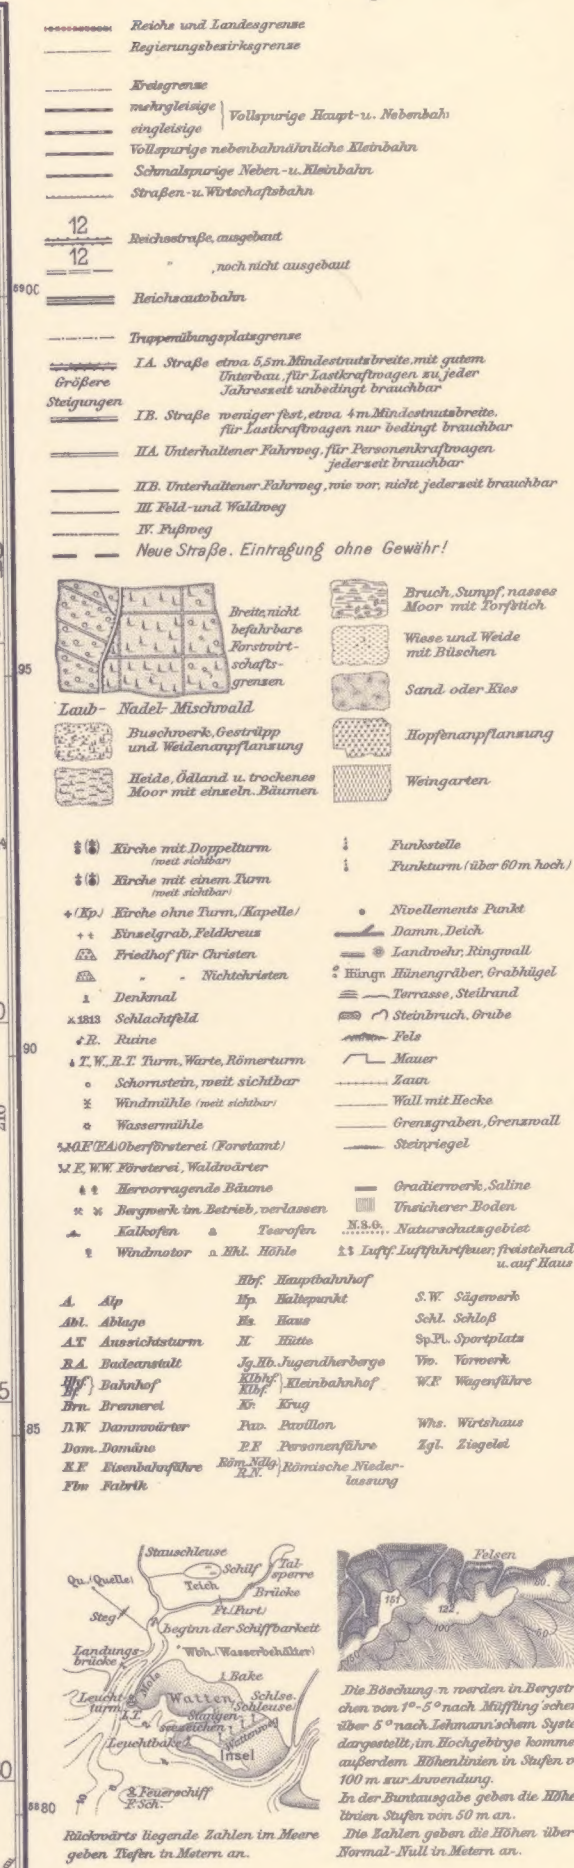 Reichs und Landesgrenze
Regierungsbezirksgrenze
Kreisgrenze
mehrgleisige
eingleisige
Vollspurige Haupt-u. Nebenbah
Vollspurige nebenbahnähnliche Kleinbahn
Schmalspurige Neben-u. Kleinbahn
Straßen-u. Wirtschaftsbahn
12
Reichsstraße, ausgebaut
12
" , noch nicht ausgebaut
5900
Reichsautobahn
Truppenübungsplatzgrenze
I A. Straße etwa 5,5m Mindestnutzbreite, mit gutem
Unterbau, für Lastkraftwagen zu jeder
Jahreszeit unbedingt brauchbar
Größere
Steigungen
I B. Straße weniger fest, etwa 4m Mindestnutzbreite.
für Lastkraftwagen nur bedingt brauchbar
II A. Unterhaltener Fahrweg, für Personenkraftwagen
jederzeit brauchbar
II B. Unterhaltener Fahrweg, wie vor, nicht jederzeit brauchbar
III. Feld-und Waldweg
IV. Fußweg
Neue Straße. Eintragung ohne Gewähr!
Breite, nicht
befahrbare
Forstwirt-
schafts-
grenzen
Laub- Nadel- Mischwald
95
Buschwerk, Gestrüpp
und Weidenanpflanzung
Heide, Ödland u. trockenes
Moor mit einzeln. Bäumen
Bruch, Sumpf, nasses
Moor mit Torfstich
Wiese und Weide
mit Büschen
Sand oder Kies
Hopfenanpflanzung
Weingarten
Kirche mit Doppelturm
(weit sichtbar)
Kirche mit einem Turm
(weit sichtbar)
(Kp.) Kirche ohne Turm, (Kapelle)
Einzelgrab, Feldkreuz
Friedhof für Christen
" " Nichtchristen
Denkmal
1813 Schlachtfeld
R. Ruine
90
T.,W.,R.T. Turm, Warte, Römerturm
Schornstein, weit sichtbar
Windmühle (weit sichtbar)
Wassermühle
O.F. (F.A.) Oberförsterei (Forstamt)
F., W.W. Försterei, Waldwärter
Hervorragende Bäume
Bergwerk im Betrieb, verlassen
Kalkofen Teerofen
Windmotor Hhl. Höhle
Funkstelle
Funkturm (über 60m hoch)
Nivellements Punkt
Damm, Deich
Landwehr, Ringwall
Hüngr. Hünengräber, Grabhügel
Terrasse, Steilrand
Steinbruch, Grube
Fels
Mauer
Zaun
Wall mit Hecke
Grenzgraben, Grenzwall
Steinriegel
Gradierwerk, Saline
Unsicherer Boden
N.S.G. Naturschutzgebiet
Luftf. Luftfahrtfeuer, freistehend
u. auf Haus
A. Alp
Abl. Ablage
A.T. Aussichtsturm
B.A. Badeanstalt
Bhf.
Bf. Bahnhof
Brn. Brennerei
85
D.W. Dammwärter
Dom. Domäne
E.F. Eisenbahnfähre
Fbr. Fabrik
Hbf. Hauptbahnhof
Hp. Haltepunkt
Hs. Haus
H. Hütte
Jg.Hb. Jugendherberge
Klbhf.
Klbf. Kleinbahnhof
Kr. Krug
Pav. Pavillon
P.F. Personenfähre
Röm. Ndlg.
R.N. Römische Nieder-
lassung
S.W. Sägewerk
Schl. Schloß
Sp.Pl. Sportplatz
Vw. Vorwerk
W.F. Wagenfähre
Whs. Wirtshaus
Zgl. Ziegelei
Stauschleuse
Qu. (Quelle)
Schilf
Teich
Tal-
sperre
Brücke
Steg
Ft. (Furt)
beginn der Schiffbarkeit
Landungs-
brücke
Wbh. (Wasserbehälter)
Mole
Bake
Leucht-
turm
L.T.
Watten
Schlse.
Schleuse
Stangen-
seezeichen
Wattenweg
Leuchtbake
Insel
Feuerschiff
F.Sch.
5880
Rückwärts liegende Zahlen im Meere
geben Tiefen in Metern an.
Felsen
151
122
100
80
50
Die Böschung n werden in Bergstri
chen von 1°-5° nach Müffling'schem
über 5° nach Lehmann'schem Syste
dargestellt, im Hochgebirge komme
außerdem Höhenlinien in Stufen v
100 m zur Anwendung.
In der Buntausgabe geben die Höhe
linien Stufen von 50 m an.
Die Zahlen geben die Höhen über
Normal-Null in Metern an.